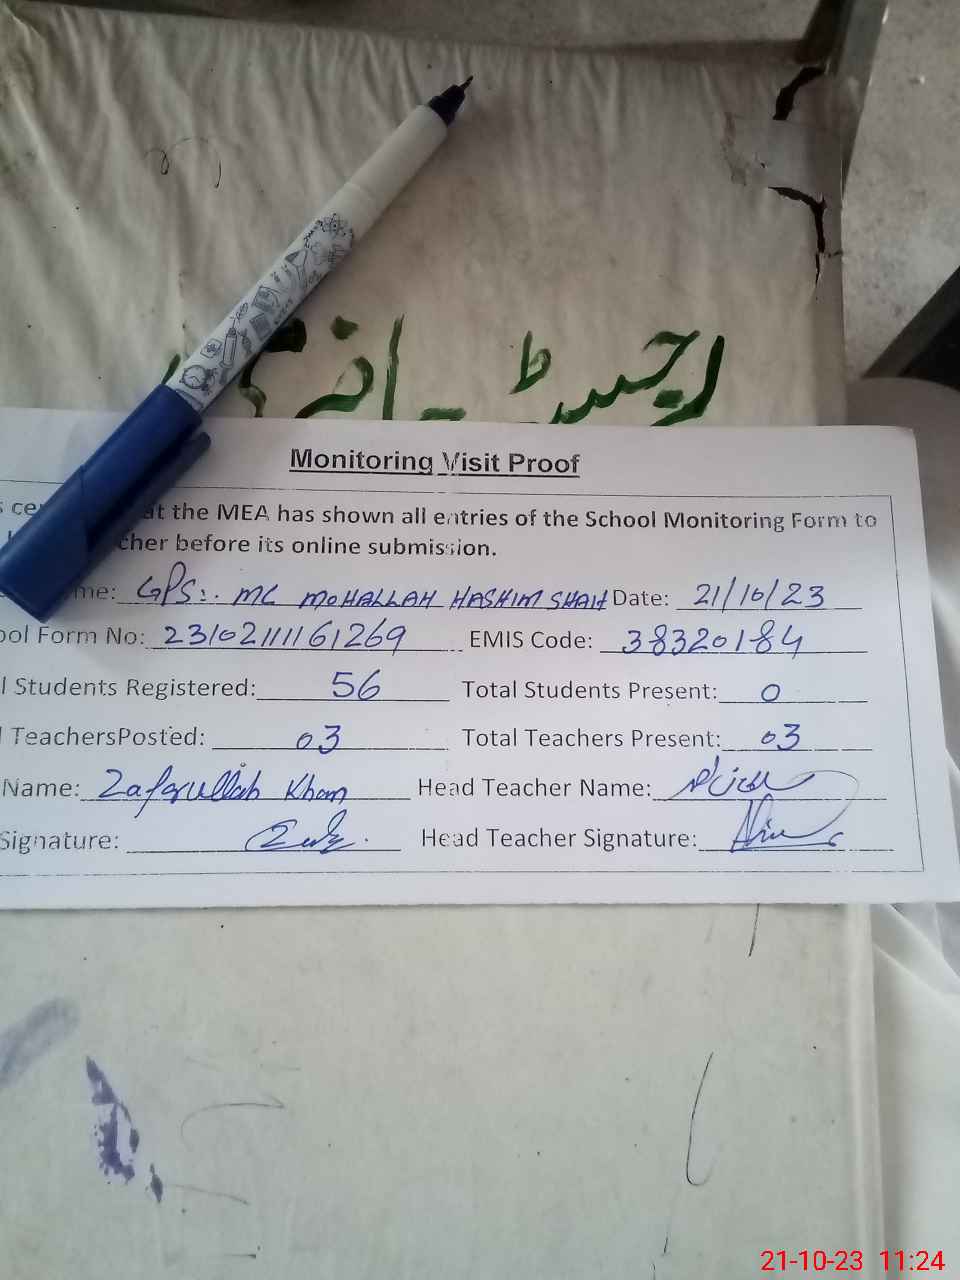 رجسٹر
Monitoring Visit Proof
at the MEA has shown all entries of the School Monitoring Form to
cher before its online submission.
me: GPS:. MC MOHALLAH HASHIM SHAH Date: 21/10/23
ool Form No: 23102111161269 EMIS Code: 38320184
l Students Registered: 56 Total Students Present: 0
l TeachersPosted: 03 Total Teachers Present: 03
Name: Zafarullah Khan Head Teacher Name:
Signature: Head Teacher Signature:
21-10-23 11:24